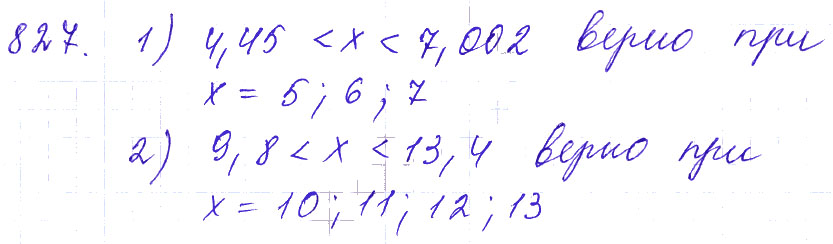 827. 1) 4,45 < x < 7,002 верно при
x = 5; 6; 7
2) 9,8 < x < 13,4 верно при
x = 10; 11; 12; 13